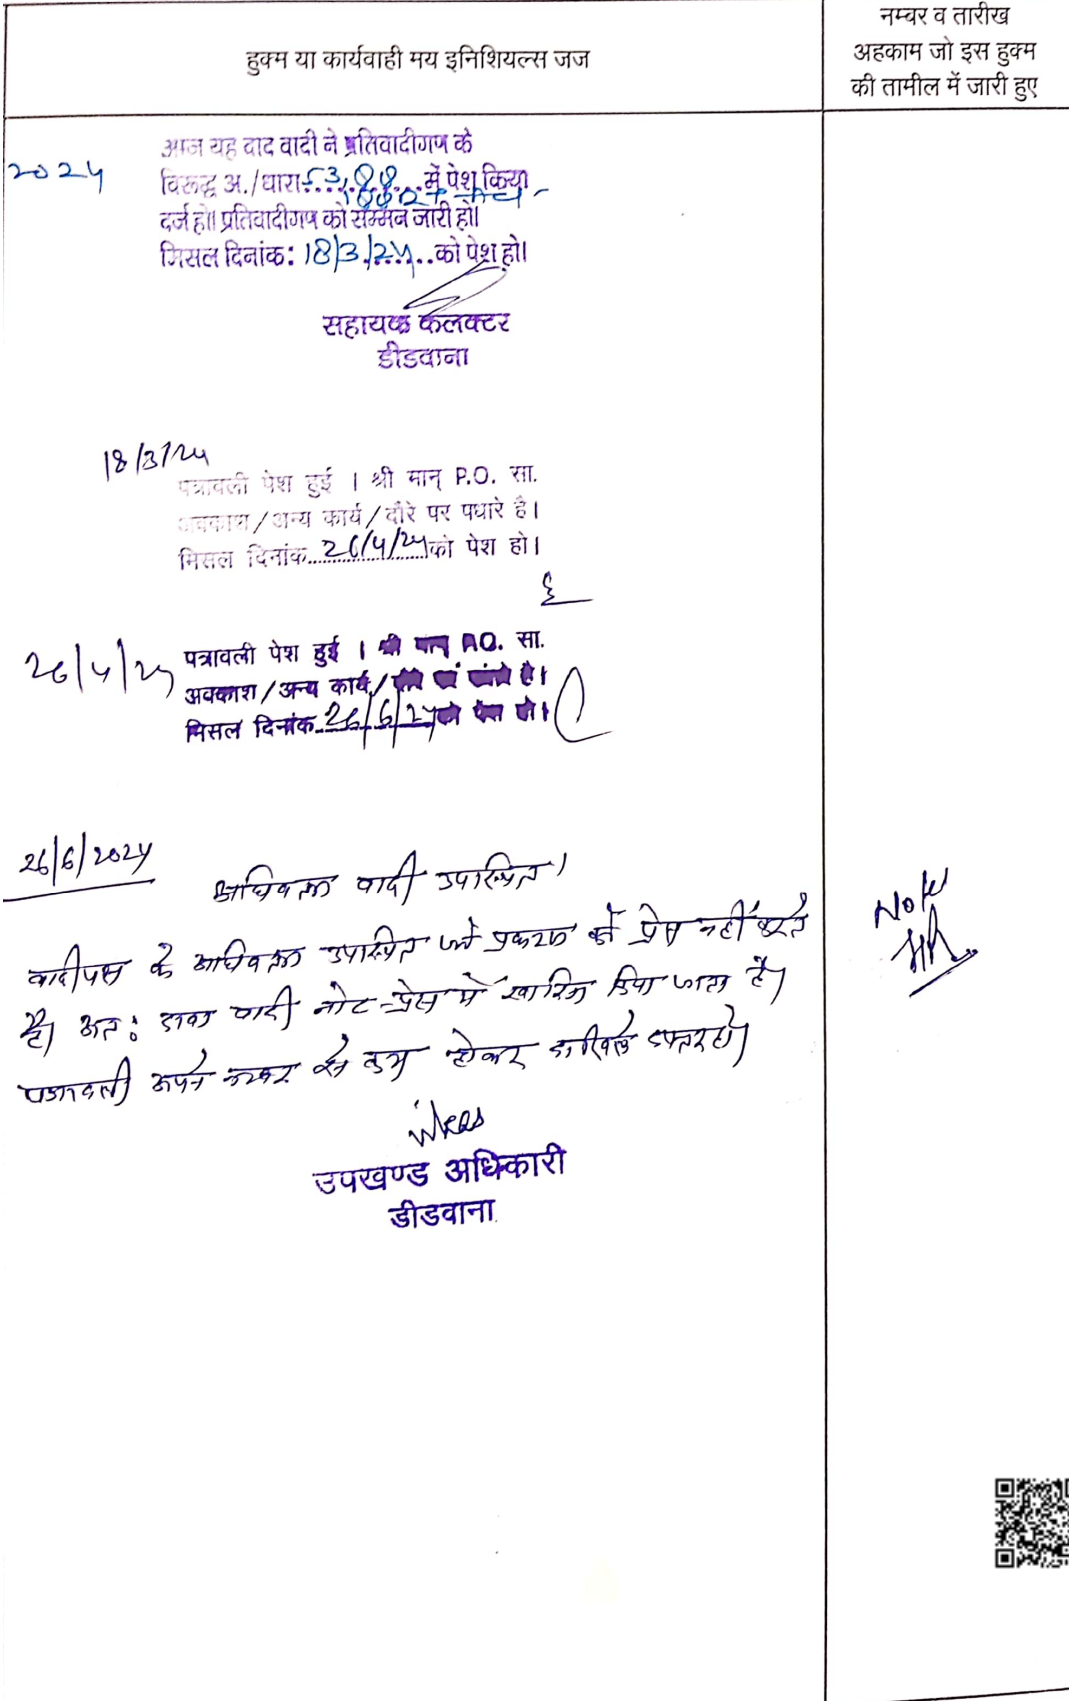 हुक्म या कार्यवाही मय इनिशियल्स जज
नम्बर व तारीख
अहकाम जो इस हुक्म
की तामील में जारी हुए
2024
आज यह वाद वादी ने प्रतिवादीगण के
विरूद्ध अ./धारा 53, 88 में पेश किया
दर्ज हो। प्रतिवादीगण को सम्मन जारी हो।
मिसल दिनांक: 18/3/24 को पेश हो।
सहायक कलक्टर
डीडवाना
18/3/24
पत्रावली पेश हुई । श्री मान् P.O. सा.
अवकाश/अन्य कार्य/दौरे पर पधारे है।
मिसल दिनांक 26/4/24 को पेश हो।
26/4/24
पत्रावली पेश हुई । श्री मान् P.O. सा.
अवकाश/अन्य कार्य/
मिसल दिनांक 26/6/24 को पेश हो।
26/6/2024
अधिवक्ता वादी उपस्थित।
वादीपक्ष के अधिवक्ता उपस्थित प्रकरण को प्रेस नहीं करते
है। अतः दावा वादी नोट-प्रेस में खारिज किया जाता है।
पत्रावली नम्बर से कम होकर दाखिल दफ्तर हो।
उपखण्ड अधिकारी
डीडवाना
Noted